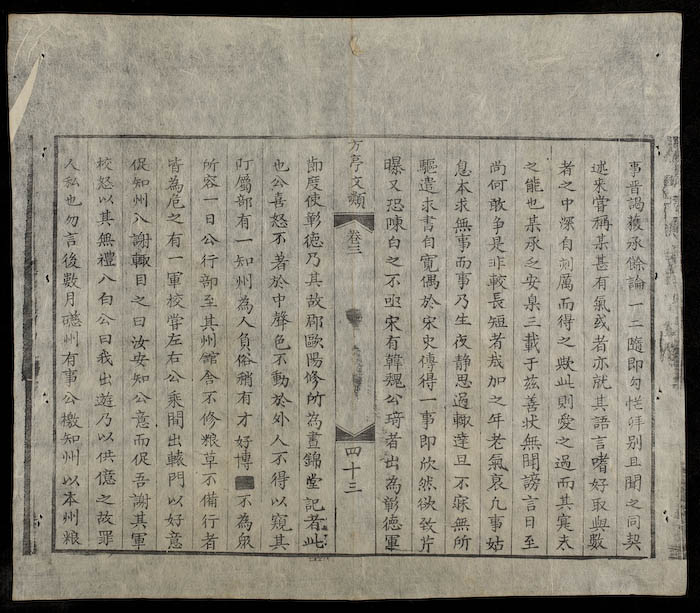 事晋謁獲承餘論一二隨即匆悾拜别且聞之同契
述来嘗稱某甚有氣或者亦就其語言嗜好取與數
者之中深自刻厲而得之歟此則愛之過而其寔未
之能也某承乏安泉三載于兹善状無聞謗言日至
尚何敢争是非較長短者哉加之年老氣衰凡事姑
息本求無事而事乃生夜静思過輒達旦不寐無所
驅遣求書自寛偶於宋史傳得一事即欣然欲效芹
曝又恐陳白之不亟宋有韓魏公琦者出為彰德軍
方亭文類
卷三
四十三
節度使彰德乃其故郡歐陽修所為晝錦堂記者此
也公喜怒不著於中聲色不動於外人不得以窺其
町屬部有一知州為人負俗稍有才好博 不為衆
所容一日公行部至其州舘舎不修粮草不備行者
皆為危之有一軍校嘗左右公乘間出轅門以好意
促知州入謝輒目之曰汝安知公意而促吾謝其軍
校怒以其無禮入白公曰我出遊乃以供億之故罪
人私也勿言後數月 州有事公檄知州以本州粮